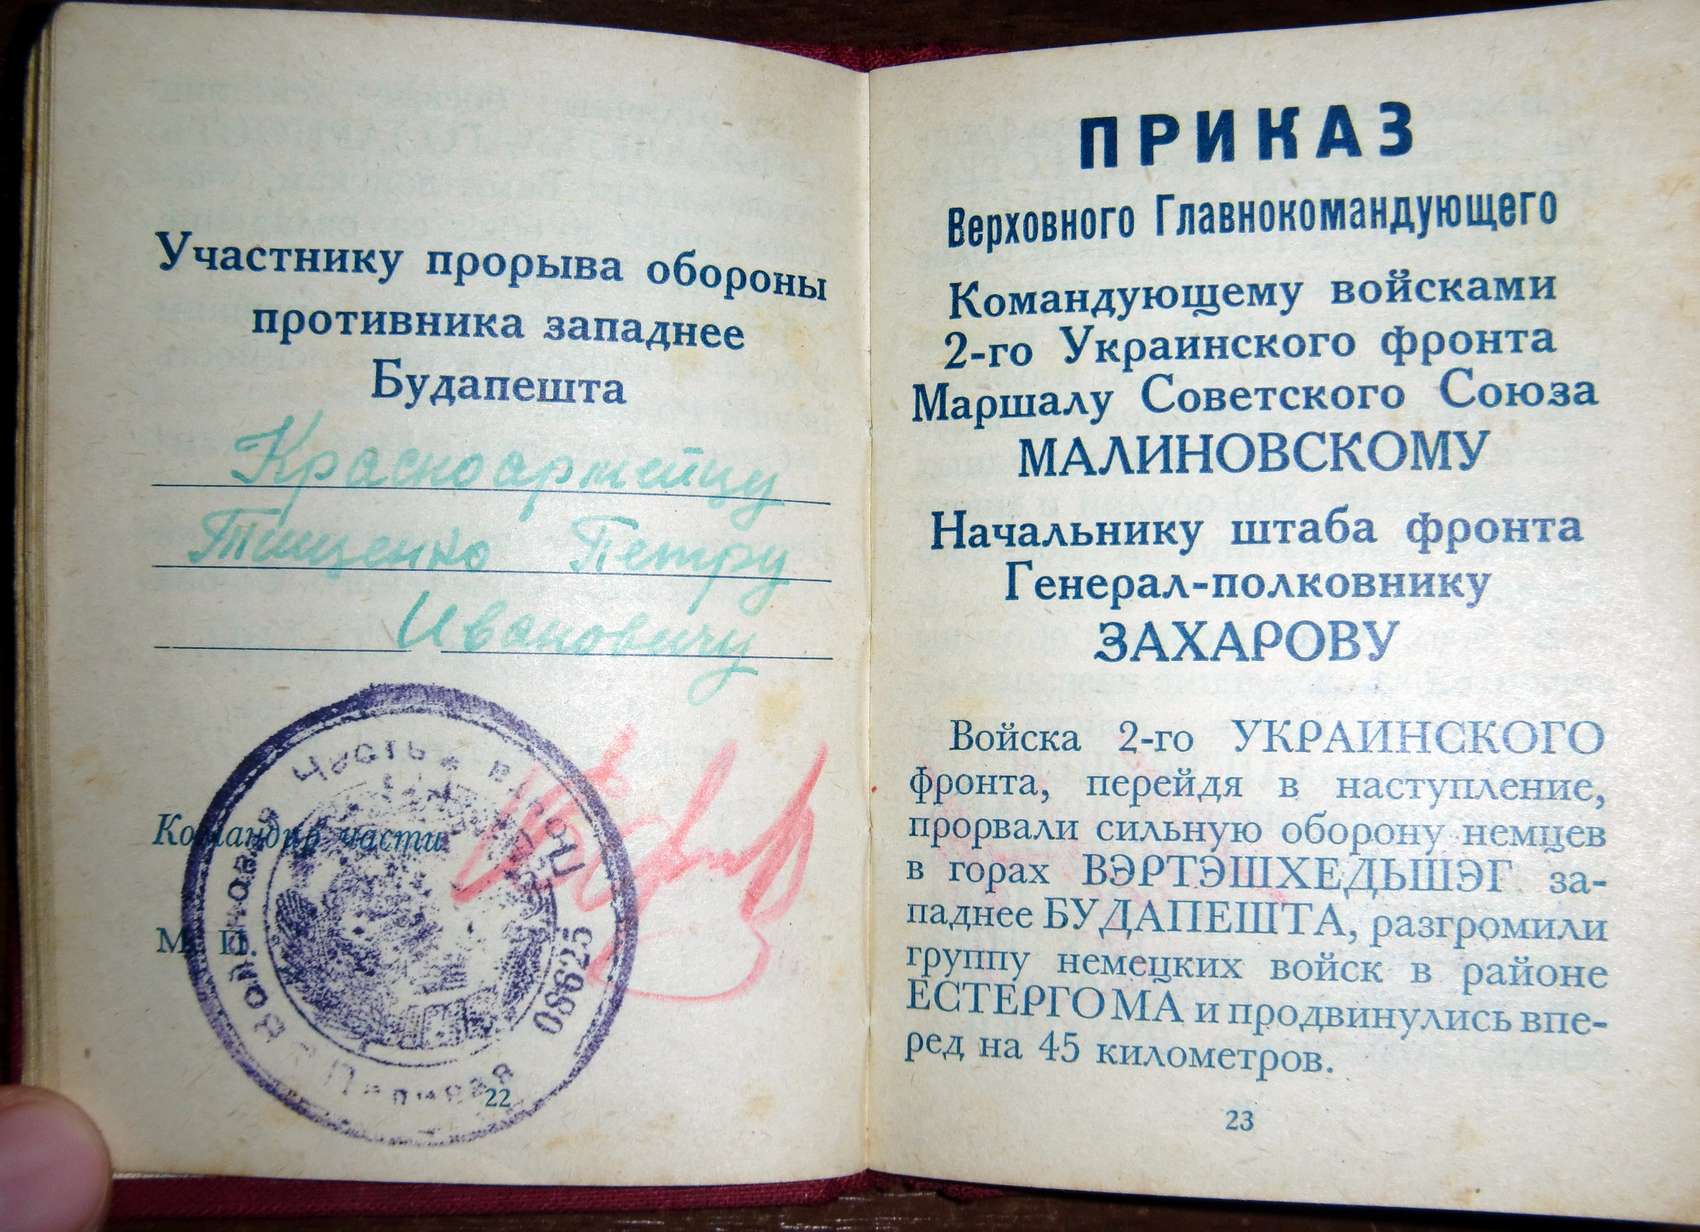 Участнику прорыва обороны
противника западнее
Будапешта
Красноармейцу
Тищенко Петру
Ивановичу
Командир части
М. П.
Войсковая Часть
Полевая
Почта
08625
22
ПРИКАЗ
Верховного Главнокомандующего
Командующему войсками
2-го Украинского фронта
Маршалу Советского Союза
МАЛИНОВСКОМУ
Начальнику штаба фронта
Генерал-полковнику
ЗАХАРОВУ
Войска 2-го УКРАИНСКОГО
фронта, перейдя в наступление,
прорвали сильную оборону немцев
в горах ВЭРТЭШХЕДЬШЭГ за-
паднее БУДАПЕШТА, разгромили
группу немецких войск в районе
ЕСТЕРГОМА и продвинулись впе-
ред на 45 километров.
23